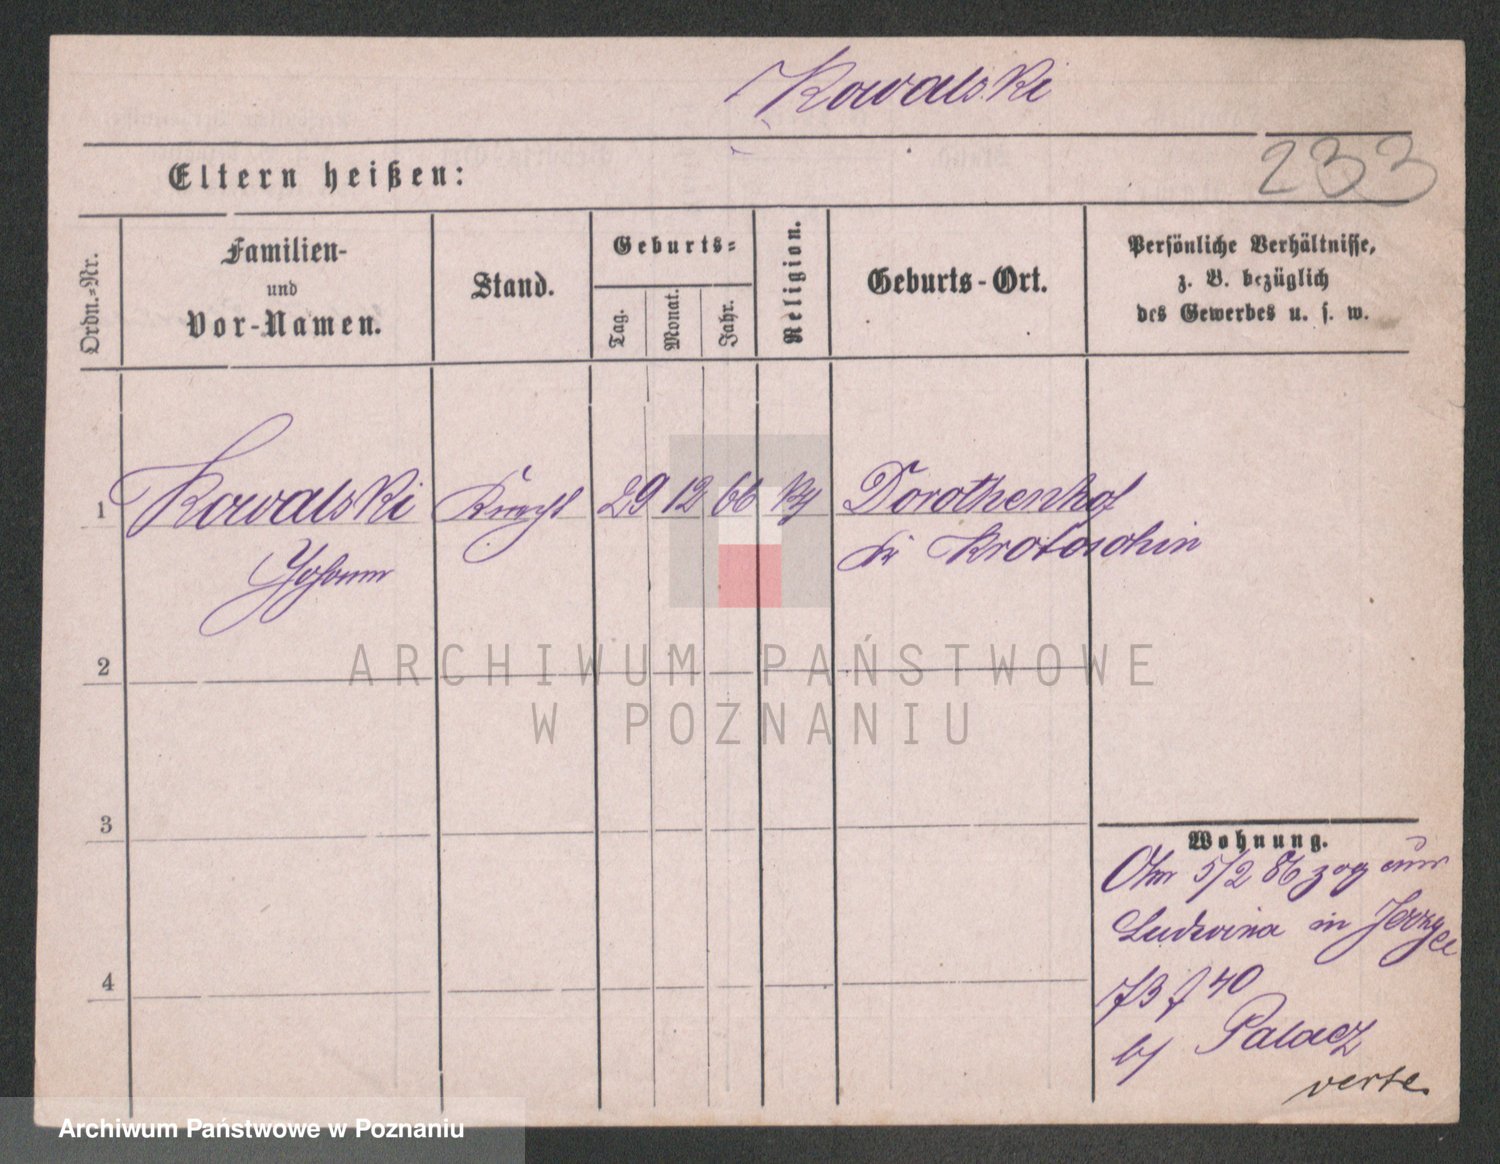 Kowalski
233
Eltern heißen:
Ordn.-Nr.
Familien-
und
Vor-Namen.
Stand.
Geburts-
Tag.
Monat.
Jahr.
Religion.
Geburts-Ort.
Persönliche Verhältnisse,
z. B. bezüglich
des Gewerbes u. s. w.
1
Kowalski Knecht 29 12 66 Dorothenhof
Johann Krotoschin
2
ARCHIWUM PAŃSTWOWE
W POZNANIU
3
4
Wohnung.
5/2 86 zog
Ludwina in
73 40
Palacz
verte.
Archiwum Państwowe w Poznaniu